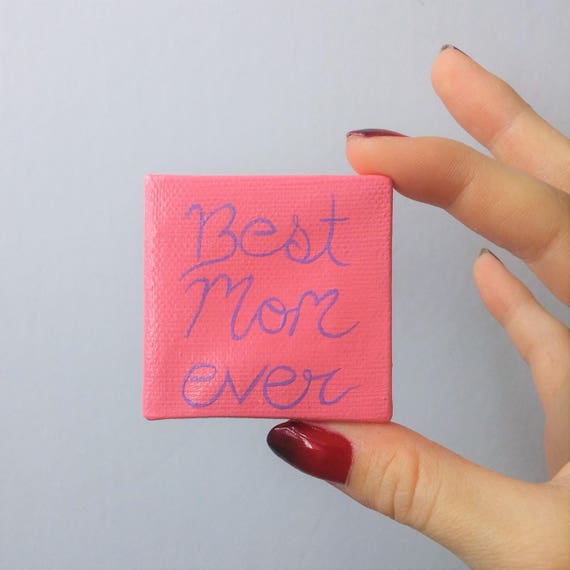 Best
Mom
ever